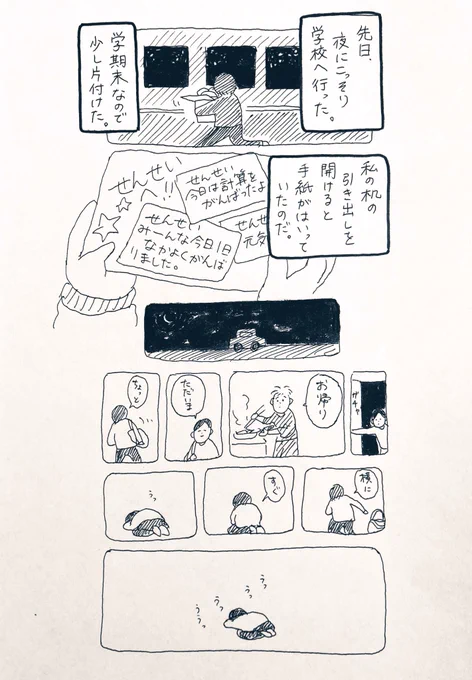 先日、
夜にこっそり
学校へ行った。
学期末なので
少し片付けた。
私の机の
引き出しを
開けると
手紙がはいって
いたのだ。
せんせい!!
せんせい
今日は計算を
がんばったよ
せんせい
みーんな今日1日
なかよくがんば
りました。
せんせ
元気
ガチャ
お帰り
ただいま
ちょっと
横に
すぐ
うっ
うっ
うっ
うっ
うぅっ